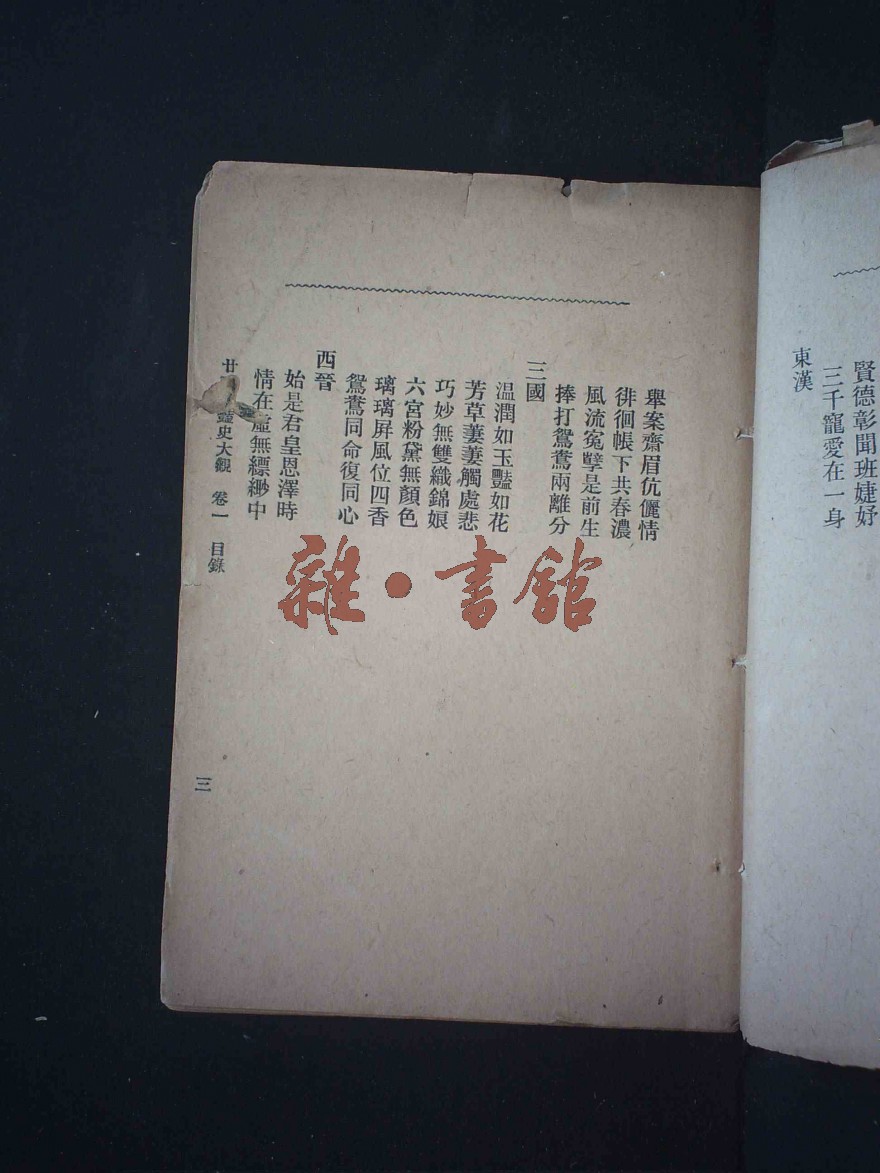 賢德彰聞班婕妤
三千寵愛在一身
東漢
舉案齋眉伉儷情
徘徊帳下共春濃
風流寃孽是前生
捧打鴛鴦兩離分
三國
温潤如玉豔如花
芳草萋萋觸處悲
巧妙無雙織錦娘
六宮粉黛無顏色
璃璃屏風位四香
鴛鴦同命復同心
西晉
始是君皇恩澤時
情在虛無縹緲中
廿 豔史大觀 卷一 目錄
三
雜·書館